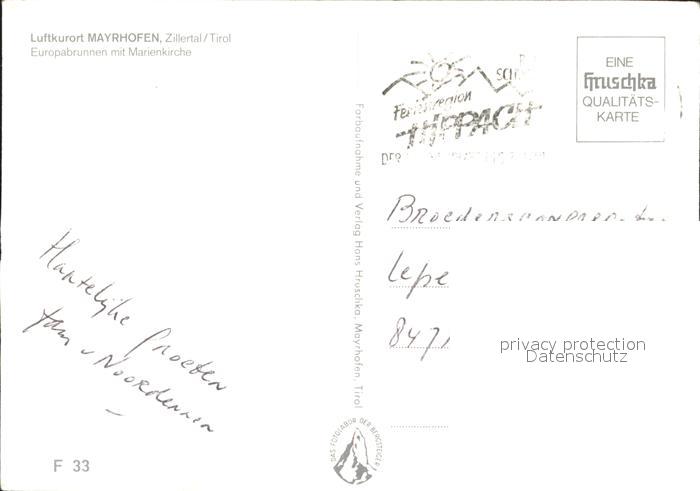 Luftkurort MAYRHOFEN, Zillertal/Tirol
Europabrunnen mit Marienkirche
Hartelijke Groeten
fam v Noordennen
F 33
Farbaufnahme und Verlag Hans Hruschka, Mayrhofen, Tirol
DAS FOTOLABOR DER BERGSTEIGER
Ferienregion
HIPPACH
DER
EINE
Hruschka
QUALITÄTS-
KARTE
Lepe
847
privacy protection
Datenschutz